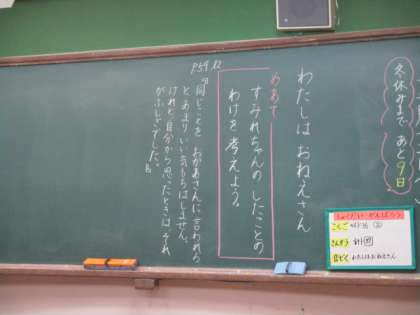 冬休みまで あと9日
わたしは おねえさん
めあて
すみれちゃんの したことの
わけを 考えよう。
P59.12
同じことを おかあさんに 言われると
あまりいい気もちはしません。
けれど、自分から思ったときは、それ
がふしぎでした。
しゅくだい がんばろう
こくご
さんすう 計
音どく わたしはおねえさん